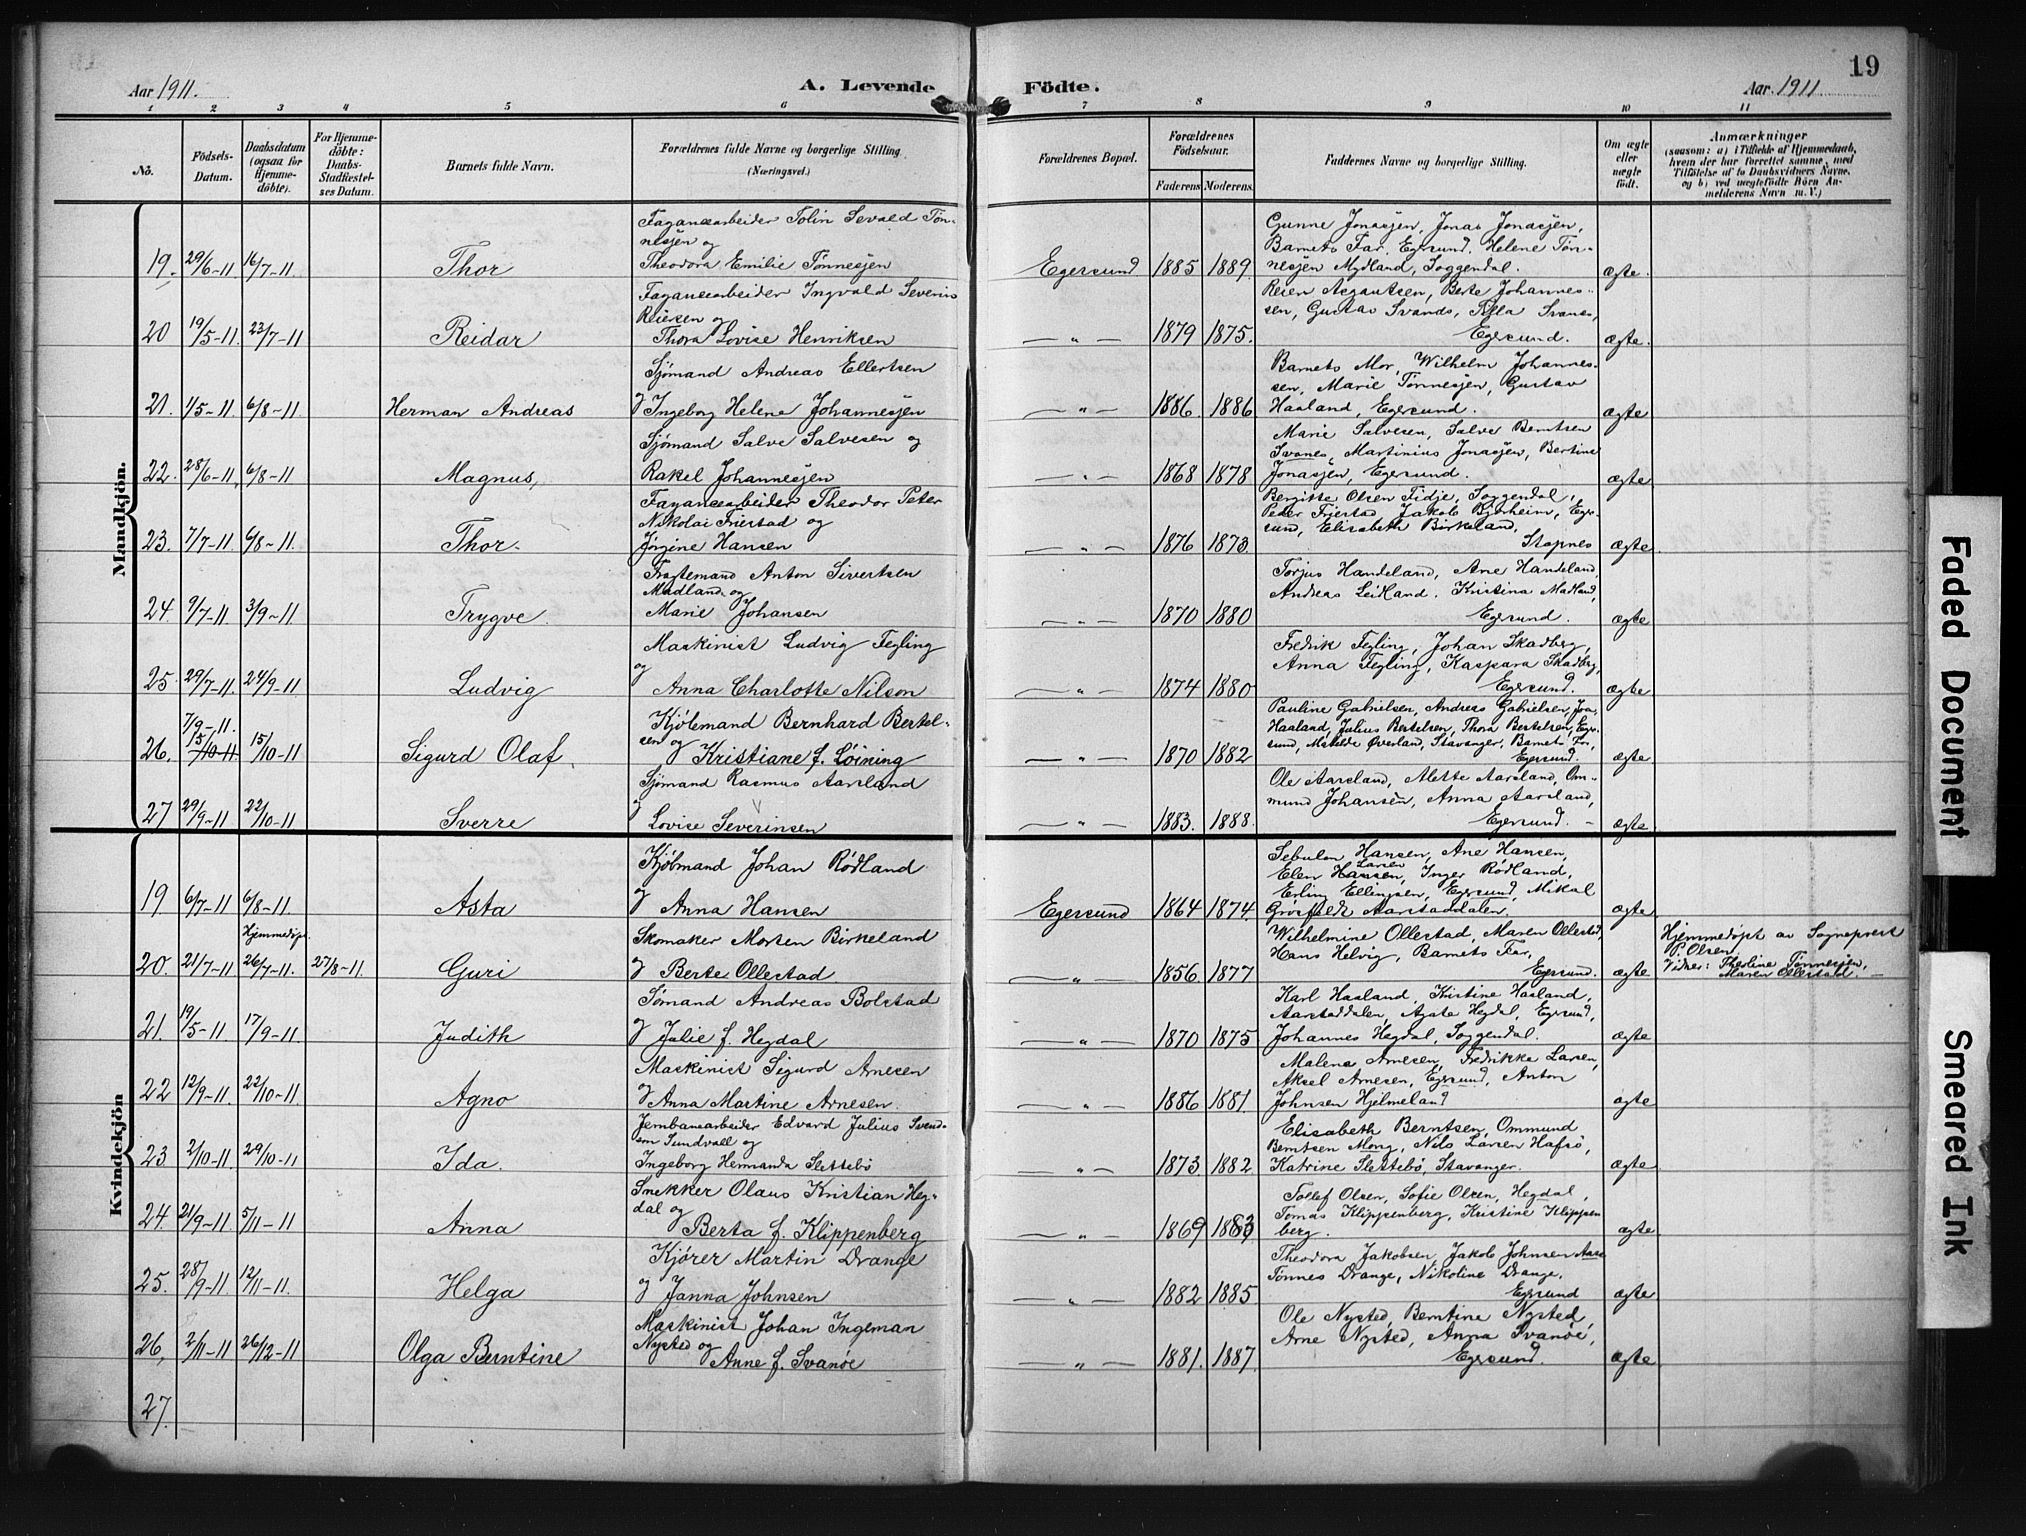 19
Aar 1911.
A. Levende
Födte.
Aar 1911
1 2 3 4 5 6 7 8 9 10 11
No.
Födsels-Datum.
Daabsdatum (ogsaa for Hjemmedöbte).
For Hjemmedöbte: Daabs-Stadfestelses Datum.
Barnets fulde Navn.
Forældrenes fulde Navne og borgerlige Stilling (Næringsvei.)
Forældrenes Bopæl.
Forældrenes Födselsaar.
Faderens Moderens.
Faddernes Navne og borgerlige Stilling.
Om ægte eller uægte födt.
Anmærkninger
(saasom: a) i Tilfælde af Hjemmedaab, hvem der har forrettet samme, med Tilföielse af to Daabsvidners Navne, og b) ved uægtefödte Börn Anmelderens Navn m. V.)
Mandkjön.
19. 29/6-11 16/7-11. Thor
Fayancearbeider Tolin Sevald Tøn-
nesjen og
Theodora Emilie Tønnesjen
Egersund 1885 1889.
Gunne Jonasjen, Jonas Jonasjen,
Barnets Far, Egersund. Helene Tøn-
nesjen Mydland, Soggendal.
ægte.
20 19/5-11. 23/7-11 Reidar
Fayancearbeider Ingvald Severin
Reiersen og
Thora Lovise Henriksen
— „ — 1879 1875.
Reier Asgautsen, Berte Johannes-
sen, Gustav Svanøs, Tilla Svanøs,
Egersund.
ægte.
21. 1/5-11 6/8-11. Herman Andreas
Sjømand Andreas Ellertsen
og Ingeborg Helene Johannesjen
— „ — 1886 1886
Barnets Mor, Wilhelm Johannes-
sen, Marie Tønnesjen, Gustav
Haaland, Egersund.
ægte
22. 28/6-11. 6/8-11 Magnus
Sjømand Salve Salvesen og
Rakel Johannesjen
— „ — 1868 1878
Marie Salvesen, Salve Berntsen
Svanes, Martinius Jonasjen, Bertine
Jonasjen, Egersund.
ægte
23. 7/7-11 6/8-11. Thor.
Fayancearbeider Theodor Peter
Nikolai Friestad og
Jørgine Hansen
— „ — 1876 1873
Bergitte Olsen Fidje, Soggendal,
Peder Frjestad, Jakob Bjerheim, Eger-
sund, Elisabeth Birkeland,
Stapnes
ægte.
24. 9/7-11 3/9-11 Trygve.
Fragtemand Anton Sivertsen
Madland og
Marie Johansen
— „ — 1870 1880
Torjus Handeland, Ane Handeland,
Andreas Leidland. Kristina Madland,
Egersund.
ægte
25. 29/7-11. 24/9-11 Ludvig
Maskinist Ludvig Fegling
og
Anna Charlotte Nilson
— „ — 1874 1880
Fredrik Fegling, Johan Skadberg,
Anna Fegling, Kaspara Skadberg,
Egersund.
ægte
7/9-11.
26. 15/10-11 15/10-11 Sigurd Olaf.
Kjøbmand Bernhard Bertel-
sen og
Kristiane f. Løining
— „ — 1870 1882
Pauline Gabrielsen, Andreas Gabrielsen,
Haaland, Julius Bertelsen, Thora Bertelsen, Eger-
sund, Matilde Øverland, Stavanger, Barnets Far,
Egersund.
ægte
27 29/9-11 22/10-11 Sverre
Sjømand Rasmus Aarsland
og
Lovise Severinsen
— „ — 1883. 1888.
Ole Aarsland, Mette Aarsland, Om-
mund Johansen, Anna Aarsland,
Egersund. -
ægte
Kvindekjön
19 6/7-11 6/8-11. Asta
Kjøbmand Johan Rødland
og Anna Hansen
Egersund 1864 1874
Sebulon Hansen, Ane Hansen,
Elen Hansen Larsen, Inger Rødland,
Erling Ellingsen, Egersund, Mikal
Grøsfjeldt Aarstaddalen.
ægte
Hjemmedøpt
20. 21/7-11 26/7-11. 27/8-11. Guri
Skomaker Morten Birkeland
og Berte Ollestad
— „ — 1856. 1877
Wilhelmine Ollestad, Maren Ollestad,
Hans Helvig, Barnets Far,
Egersund.
ægte
Hjemmedøpt av Sogneprest
P. Olsen.
Vidner: Theoline Tønnesjen,
Maren Ollestad. —
21. 19/5-11. 17/9-11. Judith
Sømand Andreas Bolstad
og Julie f. Hegdal
— „ — 1870 1875
Karl Haaland, Kristine Haaland,
Aarstaddalen, Agate Hegdal, Egersund,
Johannes Hegdal, Soggendal.
ægte
22 12/9-11. 22/10-11. Agno
Maskinist Sigurd Arnesen
og Anna Martine Arnesen.
— „ — 1886 1881
Malena Arnesen, Fredrikke Larsen,
Aksel Arnesen, Egersund, Anton
Johnsen Hjelmeland
ægte
23 2/10-11. 29/10-11 Ida.
Jernbanearbeider Edvard Julius Svend-
sen Sundvall og
Ingeborg Hermanda Slettebø
— „ — 1873 1882
Elisabeth Berntsen, Ommund
Berntsen Mong, Nils Larsen Hafsø,
Katrine Slettebø, Stavanger.
ægte
24. 21/9-11. 5/11-11 Anna
Snekker Olaus Kristian Heg-
dal og
Berta f. Klippenberg
— „ — 1869 1883
Tollef Olsen, Sofie Olsen, Hegdal,
Tomas Klippenberg, Kristine Klippen
berg.
ægte
25. 28/9-11 12/11-11. Helga
Kjører Martin Drange
og Janna Johnsen
— „ — 1882 1885
Theodora Jakobsen, Jakob Johnsen
Tønnes Drange, Nikoline Drange,
Egersund
ægte
26, 2/11-11 26/12-11 Olga Berntine
Maskinist Johan Ingeman
Nysted og
Anne f. Svanøe
— „ — 1881. 1887.
Ole Nysted, Berntine Nysted,
Arne Nysted, Anna Svanøe,
Egersund.
ægte
27.
Faded Document
Smeared Ink